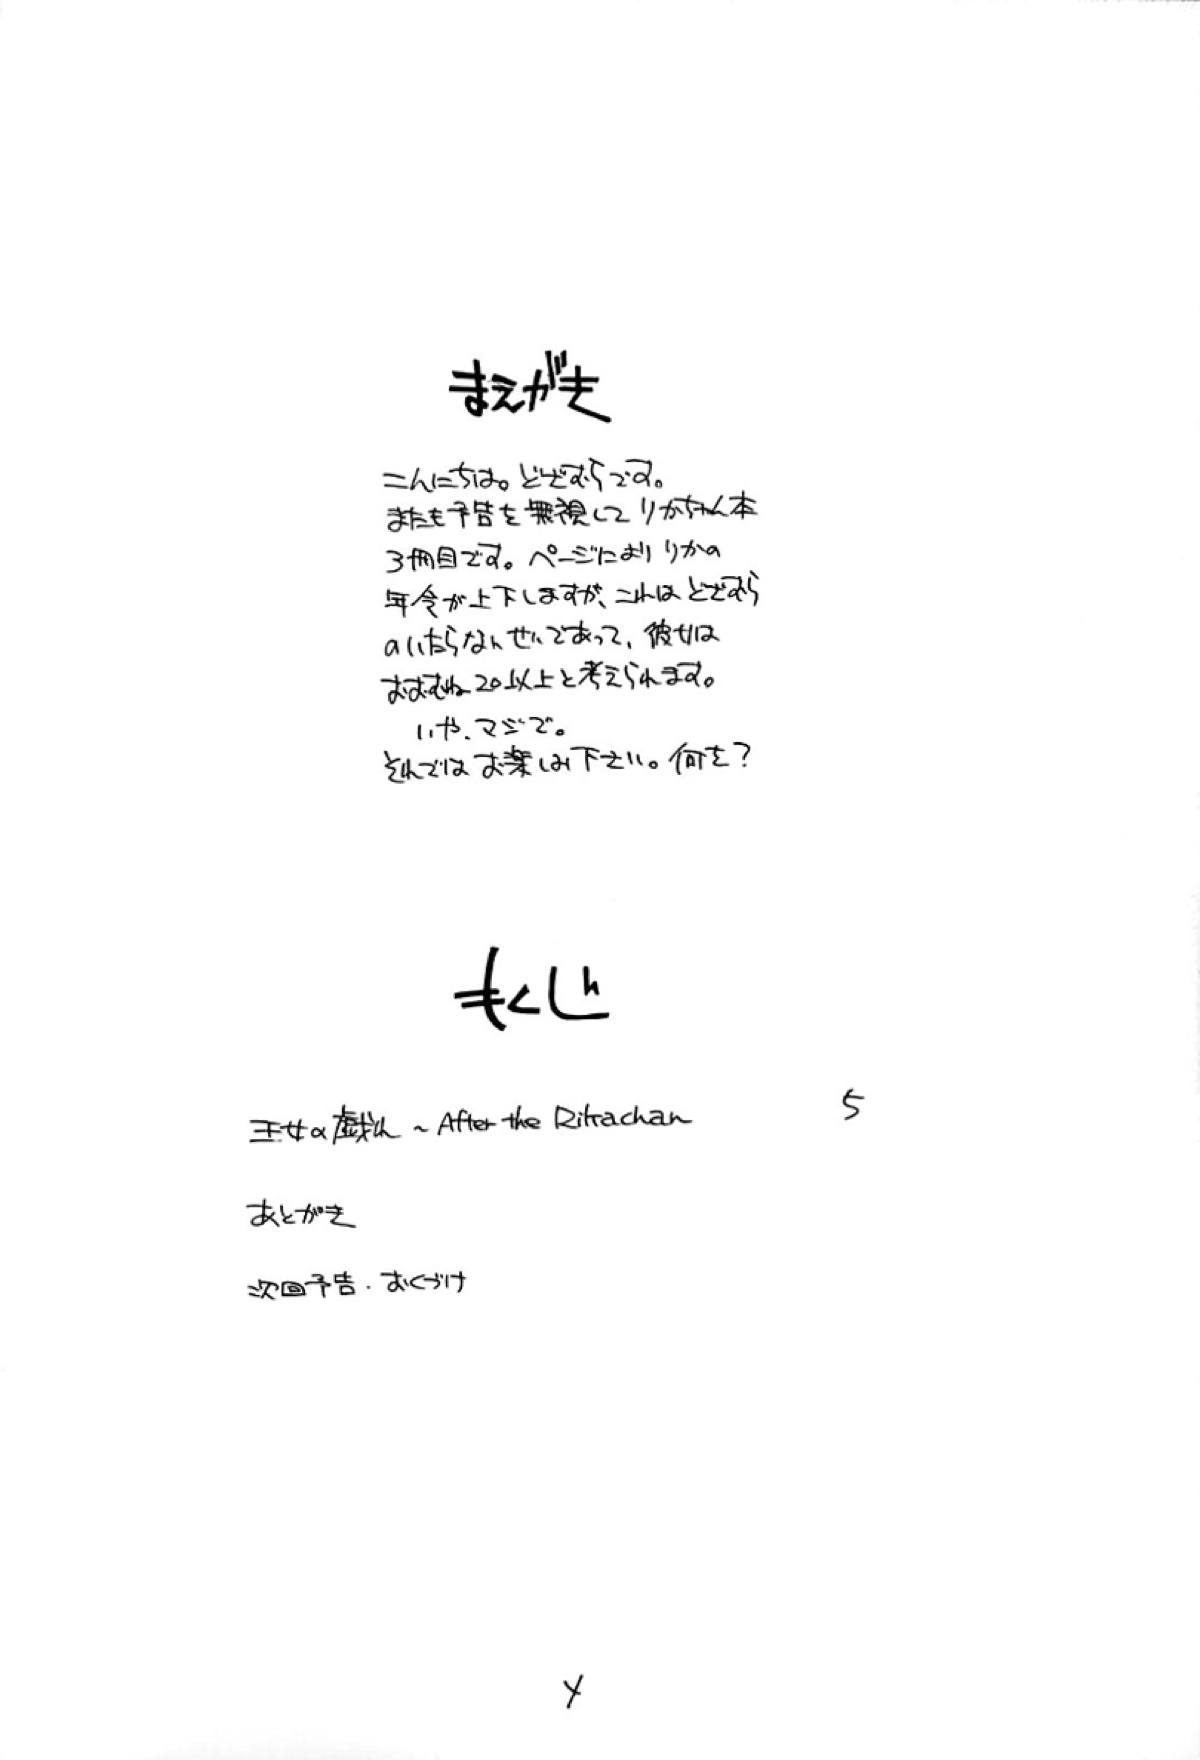 まえがき
こんにちは。どざむらです。
またも予告を無視してりかちゃん本
3冊目です。ページによりりかの
年令が上下しますが、これはどざむら
のいたらないせいであって、彼女は
おおむね20以上と考えられます。
いや、マジで。
それではお楽しみ下さい。何を?
もくじ
王女の戯れ ~After the Rikachan 5
あとがき
次回予告・おくづけ
4